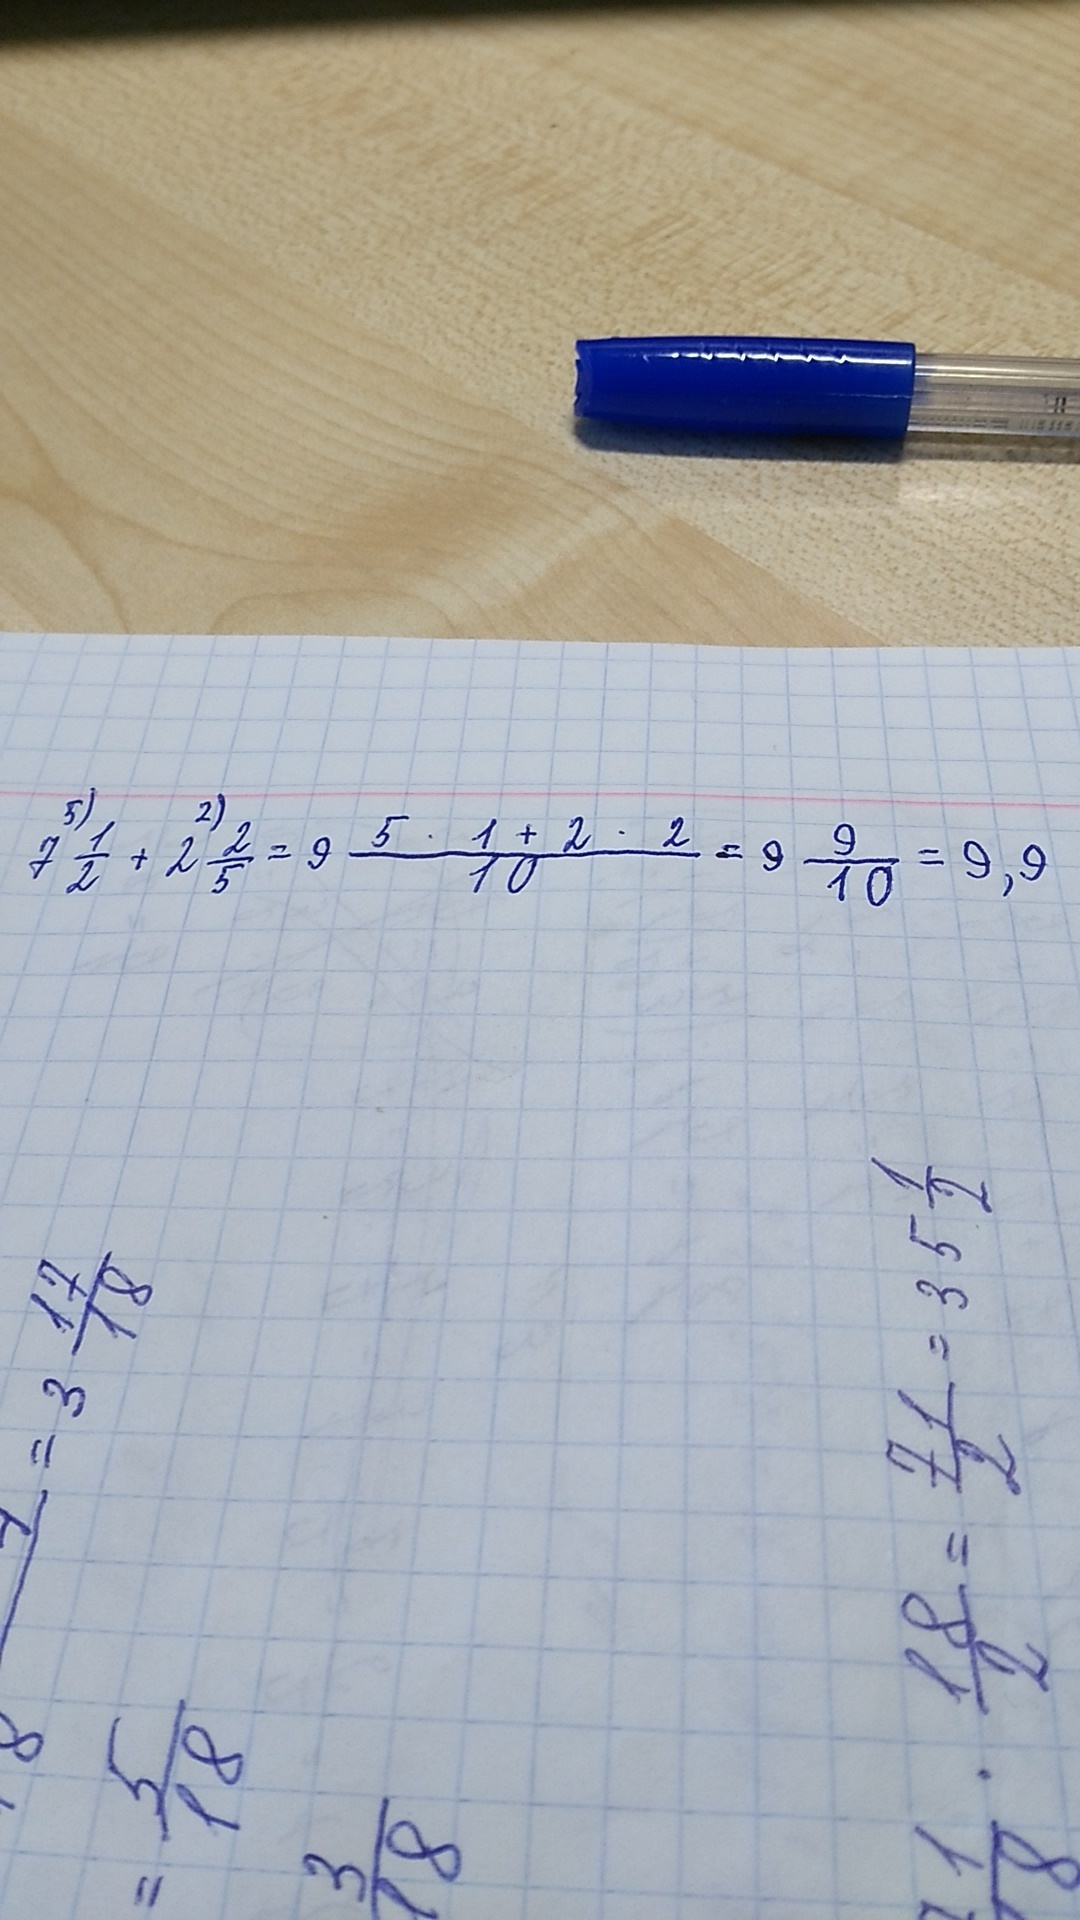 7 5) 1/2 + 2 2) 2/5 = 9 (5 · 1 + 2 · 2)/10 = 9 9/10 = 9,9
= 3 17/18
= 5/18
3/18
71/18 · 18/2 = 71/2 = 35 1/2